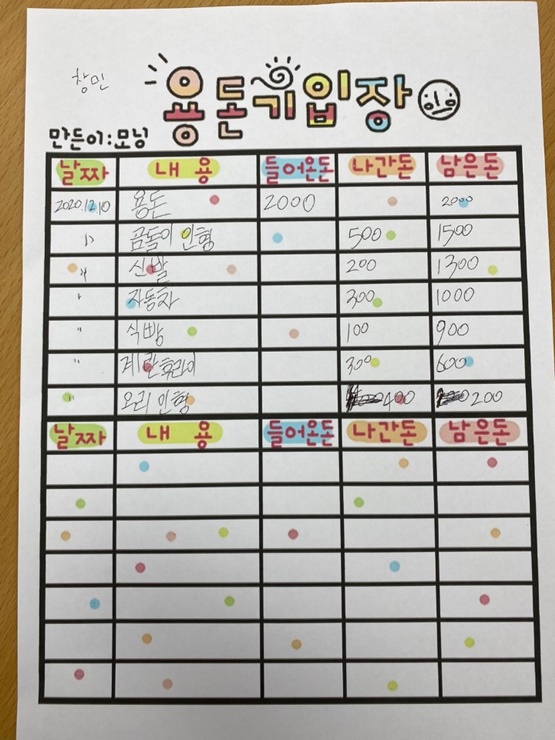 창민
용돈기입장
만든이:모닝
날짜 내용 들어온돈 나간돈 남은돈
2020.12.10 용돈 2000 2000
" 곰돌이 인형 500 1500
" 신발 200 1300
" 자동차 300 1000
" 식빵 100 900
" 계란후라이 300 600
" 오리 인형 400 200
날짜 내용 들어온돈 나간돈 남은돈